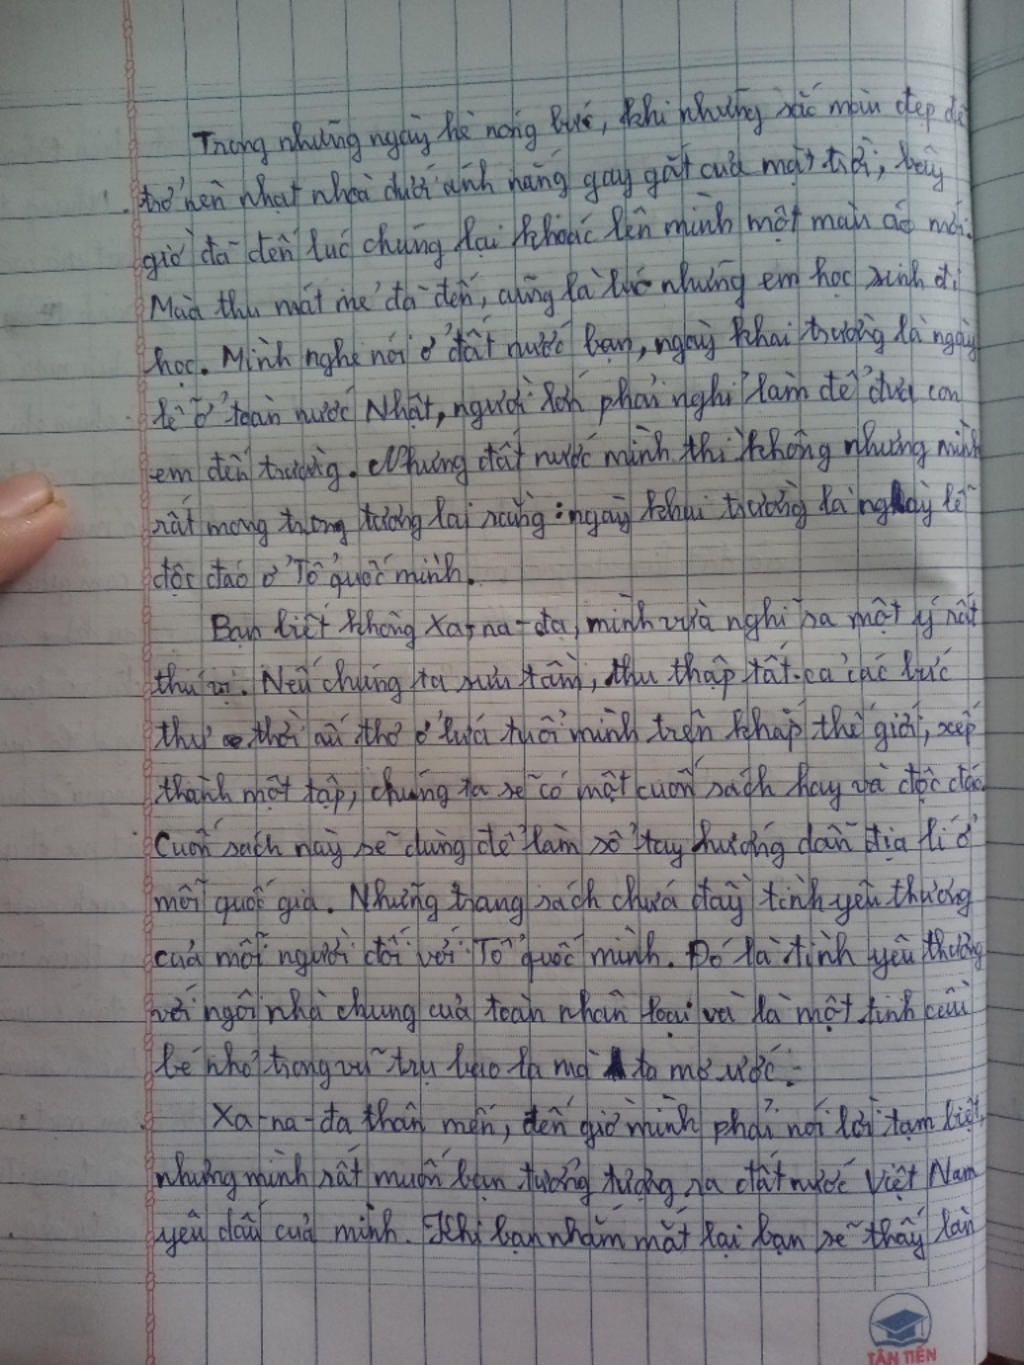 Trong những ngày hè nóng bức, khi những sắc màu đẹp đẽ
trở nên nhạt nhoà dưới ánh nắng gay gắt của mặt trời, bây
giờ đã đến lúc chúng lại khoác lên mình một màu áo mới.
Mùa thu mát mẻ đã đến, cũng là lúc những em học sinh đi
học. Mình nghe nói ở đất nước bạn, ngày khai trường là ngày
lễ ở toàn nước Nhật, người lớn phải nghỉ làm để đưa con
em đến trường. Nhưng đất nước mình thì không nhưng mình
rất mong trong tương lai rằng: ngày khai trường là ngày lễ
độc đáo ở Tổ quốc mình.
Bạn biết không Xa-na-đa, mình vừa nghĩ ra một ý rất
thú vị. Nếu chúng ta sưu tầm, thu thập tất cả các bức
thư thời ấu thơ ở lứa tuổi mình trên khắp thế giới, xếp
thành một tập, chúng ta sẽ có một cuốn sách hay và độc đáo.
Cuốn sách này sẽ dùng để làm sổ tay hướng dẫn địa lí ở
mỗi quốc gia. Những trang sách chứa đầy tình yêu thương
của mỗi người đối với Tổ quốc mình. Đó là tình yêu thương
với ngôi nhà chung của toàn nhân loại và là một tinh cầu
bé nhỏ trong vũ trụ bao la mà ta mơ ước.
Xa-na-đa thân mến, đến giờ mình phải nói lời tạm biệt,
nhưng mình rất muốn bạn tưởng tượng ra đất nước Việt Nam
yêu dấu của mình. Khi bạn nhắm mắt lại bạn sẽ thấy làn
TÂN TIẾN